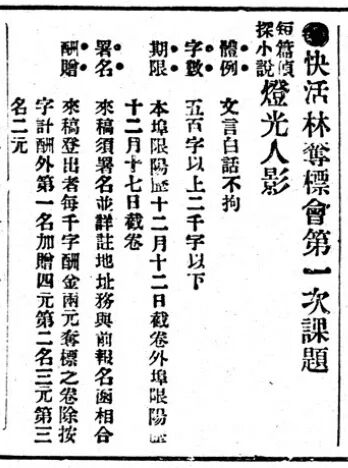 ●快活林奪標會第一次課題
短篇偵探小說 燈光人影
體例 文言白話不拘
字數 五百字以上二千字以下
期限 本埠限陽歷十二月十二日截卷外埠限陽歷
十二月十七日截卷
署名 來稿須署名並詳註地址務與前報名函相合
酬贈 來稿登出者每千字酬金兩元奪標之卷除按
字計酬外第一名加贈四元第二名三元第三
名二元